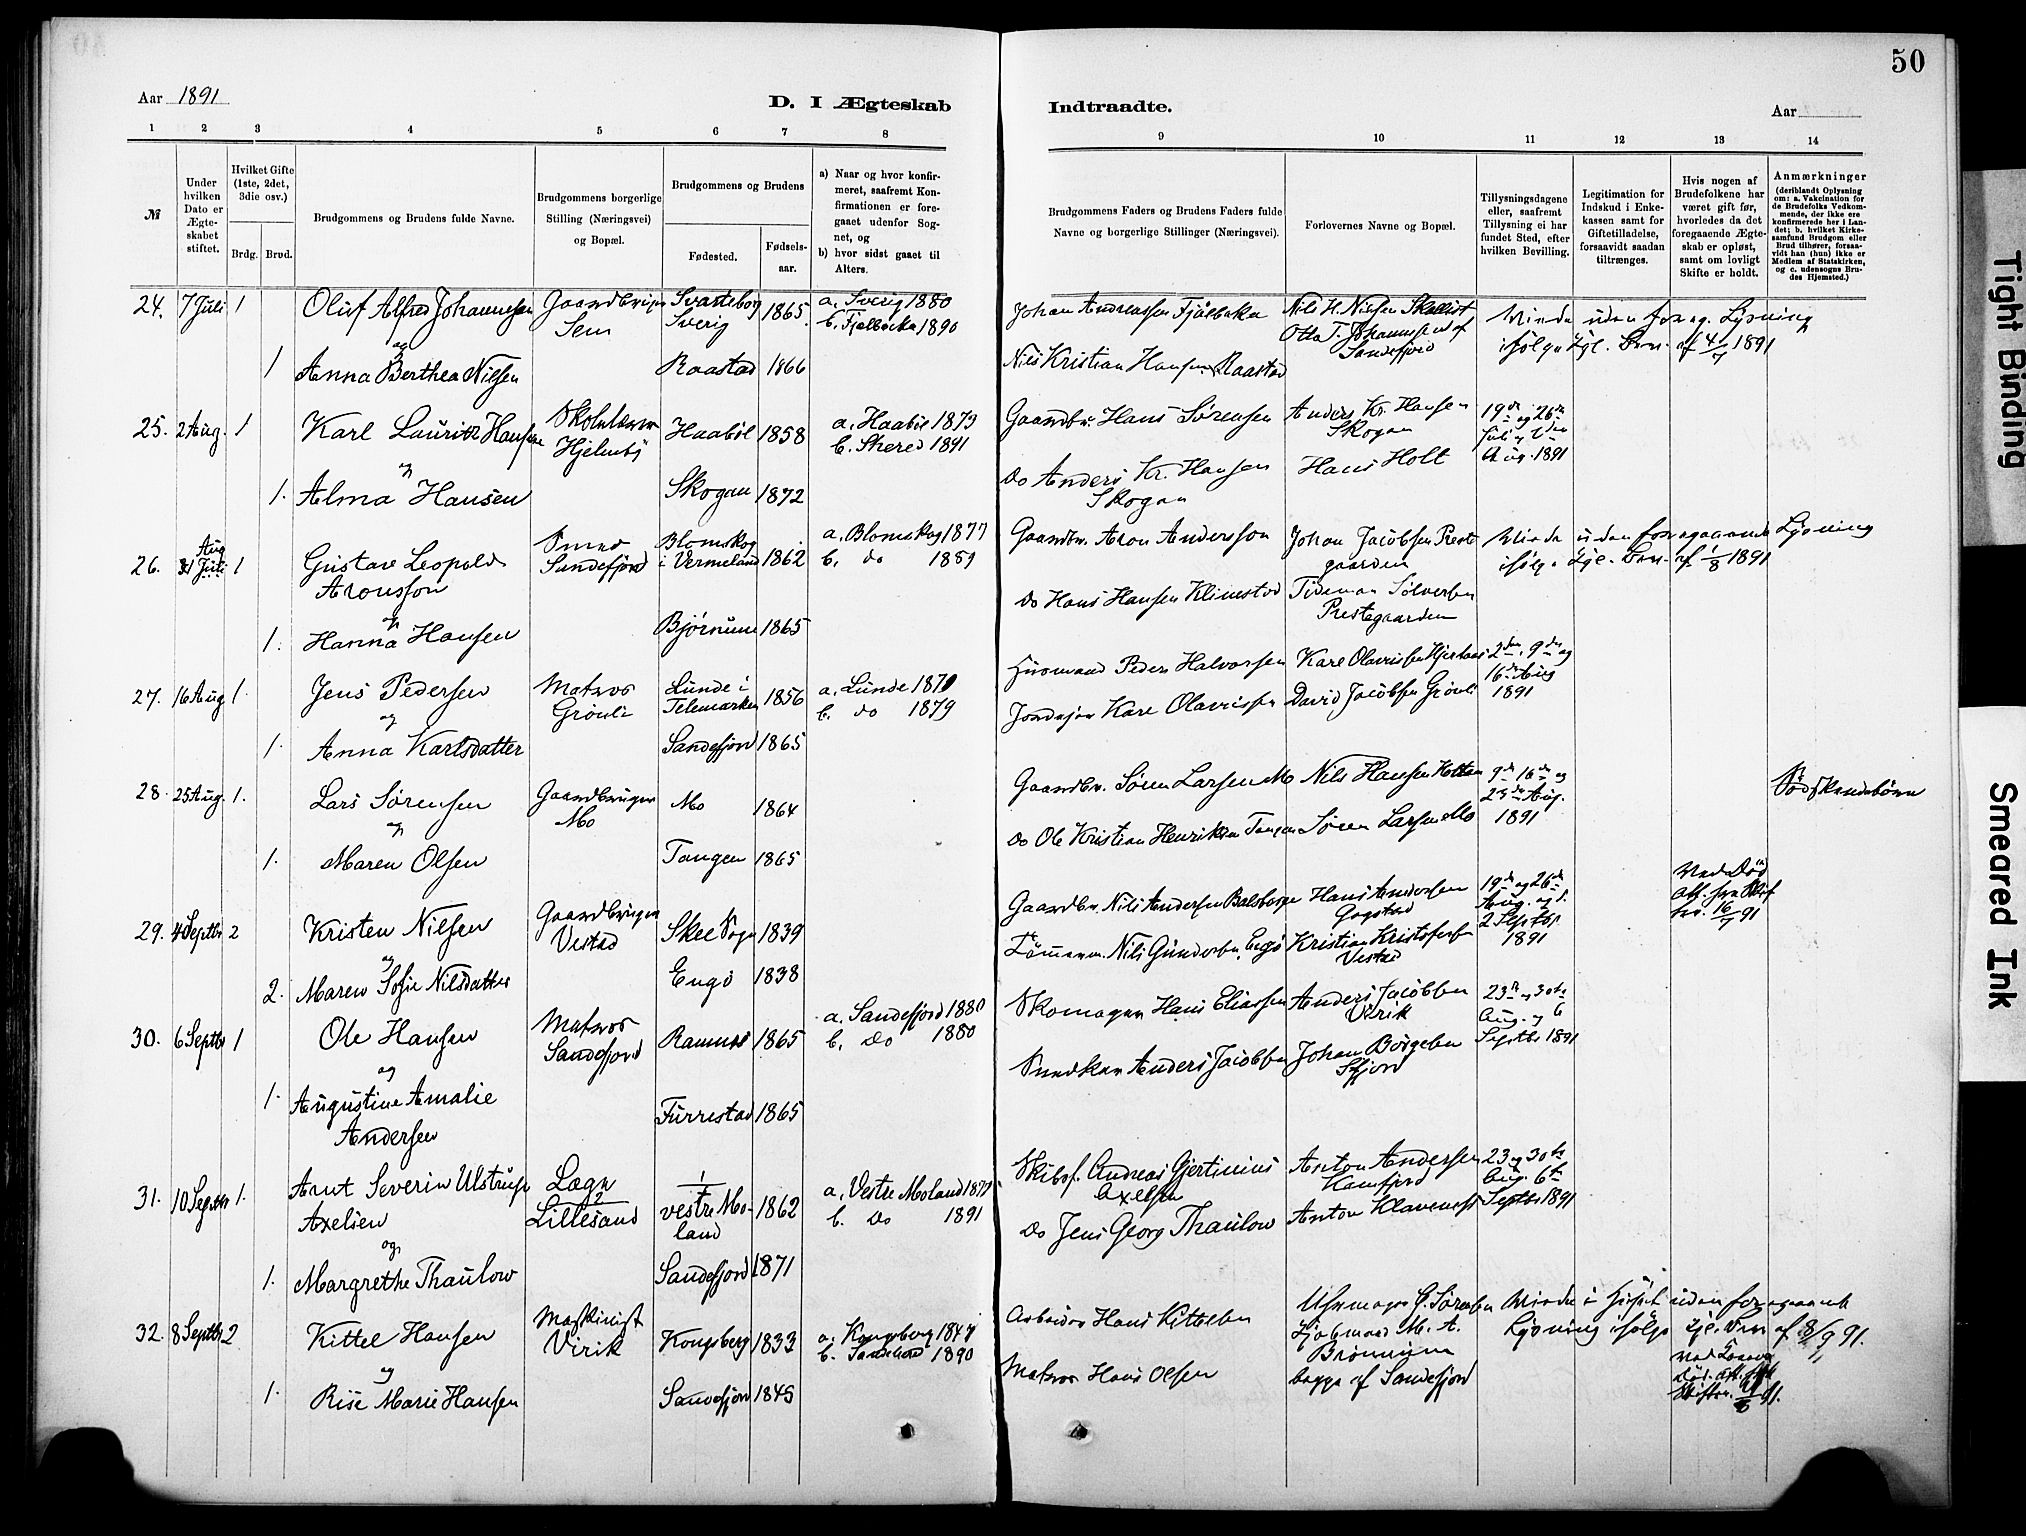 50
Aar 1891
D. I Ægteskab
Indtraadte.
Aar
1 2 3 4 5 6 7 8
9 10 11 12 13 14
№
Under hvilken Dato er Ægteskabet stiftet.
Hvilket Gifte (1ste, 2det, 3die osv.)
Brdg. Brud.
Brudgommens og Brudens fulde Navne.
Brudgommens borgerlige Stilling (Næringsvei) og Bopæl.
Brudgommens og Brudens
Fødested.
Fødselsaar.
a) Naar og hvor konfirmeret, saafremt Konfirmationen er foregaaet udenfor Sognet, og
b) hvor sidst gaaet til Alters.
Brudgommens Faders og Brudens Faders fulde Navne og borgerlige Stillinger (Næringsvei).
Forlovernes Navne og Bopæl.
Tillysningsdagene eller, saafremt Tillysning ei har fundet Sted, efter hvilken Bevilling.
Legitimation for Indskud i Enkekassen samt for Giftetilladelse, forsaavidt saadan tiltrænges.
Hvis nogen af Brudefolkene har været gift før, hvorledes da det foregaaende Ægteskab er opløst, samt om lovligt Skifte er holdt.
Anmærkninger
(deriblandt Oplysning om: a. Vakcination for de Brudefolks Vedkommende, der ikke ere konfirmerede her i Landet; b. hvilket Kirkesamfund Brudgom eller Brud tilhører, forsaavidt han (hun) ikke er Medlem af Statskirken, og c. udensogns Brudes Hjemsted.)
24. 7 Juli 1 Oluf Alfred Johannesen Gaardbruger Sem Svarteborg Sverig 1865 a. Sverig 1880 b. Fjelbacka 1890
Johan Andreassen Fjälbacka Nils H. Nielsen Otto T. Johannesen af Sandefjord
uden foreg. Lysning ifølge Kgl. Bev. af 4/7 1891
og
1 Anna Berthea Nilsen Raastad 1866 Nils Kristian Hansen Raastad
25. 2 Aug. 1 Karl Lauritz Hansen Hjelmby Haabøl 1858 a. Haabøl 1873 b. Skered 1891
Gaardbr. Hans Sørensen Anders Kr. Hansen Skogan 19de og 26de Juli Aug. 1891
og
1. Alma Hansen Skogan 1872 Do Anders Kr. Hansen Skogan Hans Holt
26. Aug 31 Juli 1 Gustave Leopold Aronsson Smed Sandefjord Blomskog i Vermeland 1862 a. Blomskog 1877 b. do 1889
Gaardbr. Aron Andersson Johan Jacobsen Prestegaarden
uden foregaaende Lysning ifølge Kgl. Bev. af 1/8 1891
og
1. Hanna Hansen Bjørnum 1865 Do Hans Hansen Klinestad Tideman Sølversen Prestegaarden
27. 16 Aug 1. Jens Pedersen Matros Grönli Lunde i Telemarken 1856 a. Lunde 1871 b. do 1879
Husmand Peder Halvorsen 2den, 9de og 16de Aug 1891
og
1. Anna Karlsdatter Sandefjord 1865 Karl Olavesen David Jacobsen Grönli
28. 25 Aug. 1. Lars Sørensen Gaardbruger Mo Mo 1864
Gaardbr. Søren Larsen Mo Nils Hansen 9de 16de og 23de Aug. 1891 Sødskendebørn
og
1. Maren Olsen Tangen 1865 Do Ole Kristian Henriksen Tangen Søren Larsen Mo
29. 4 Septbr 2 Kristen Nilsen Gaardbruger Vestad Skee Sogn 1839
Gaardbr. Nils Andersen Hans Andersen Gogstad 19de og 26de Aug. og 2 Septbr 1891
Ved Død 16/7 91
og
2. Maren Sofie Nilsdatter Engø 1838 Tømmerm. Nils Gundersen, Engø Kristian Kristofersen Vestad
30. 6 Septbr 1 Ole Hansen Matros Sandefjord 1865 a. Sandefjord 1880 b. Do 1880
Skomager Hans Eliassen Anders Jacobsen Virik 23de og 30te Aug. og 6 Septbr 1891
og
1. Augustine Amalie Andersen Furrestad 1865 Snedker Anders Jacobsen Johan Børgesen Sfjord
31. 10 Septbr 1. Arnt Severin Ulstrup Axelsen Læge Lillesand vestre Moland 1862 a. Vestre Moland 1877 b. Do 1891
Skibsf. Andreas Gjertinius Axelsen Anton Andersen Kamfjord 23 og 30te Aug. 6te Septbr 1891
og
1. Margrethe Thaulow Sandefjord 1871 Do Jens Georg Thaulow Anton Klavenes
32. 8 Septbr 2 Kittel Hansen Maskinist Virik Kongsberg 1833 a. Kongsberg 1847 b. Sandeherred 1890
Arbeider Hans Kittelsen Uhrmager G. Sørensen Kjøbmand M. A. Brønnum begge af Sandefjord
i Huset uden foregaaende Lysning ifølge Kgl. Bev. af 8/9 91.
og
1. Rise Marie Hansen Sandefjord 1845 Matros Hans Olsen
Tight Binding
Smeared Ink